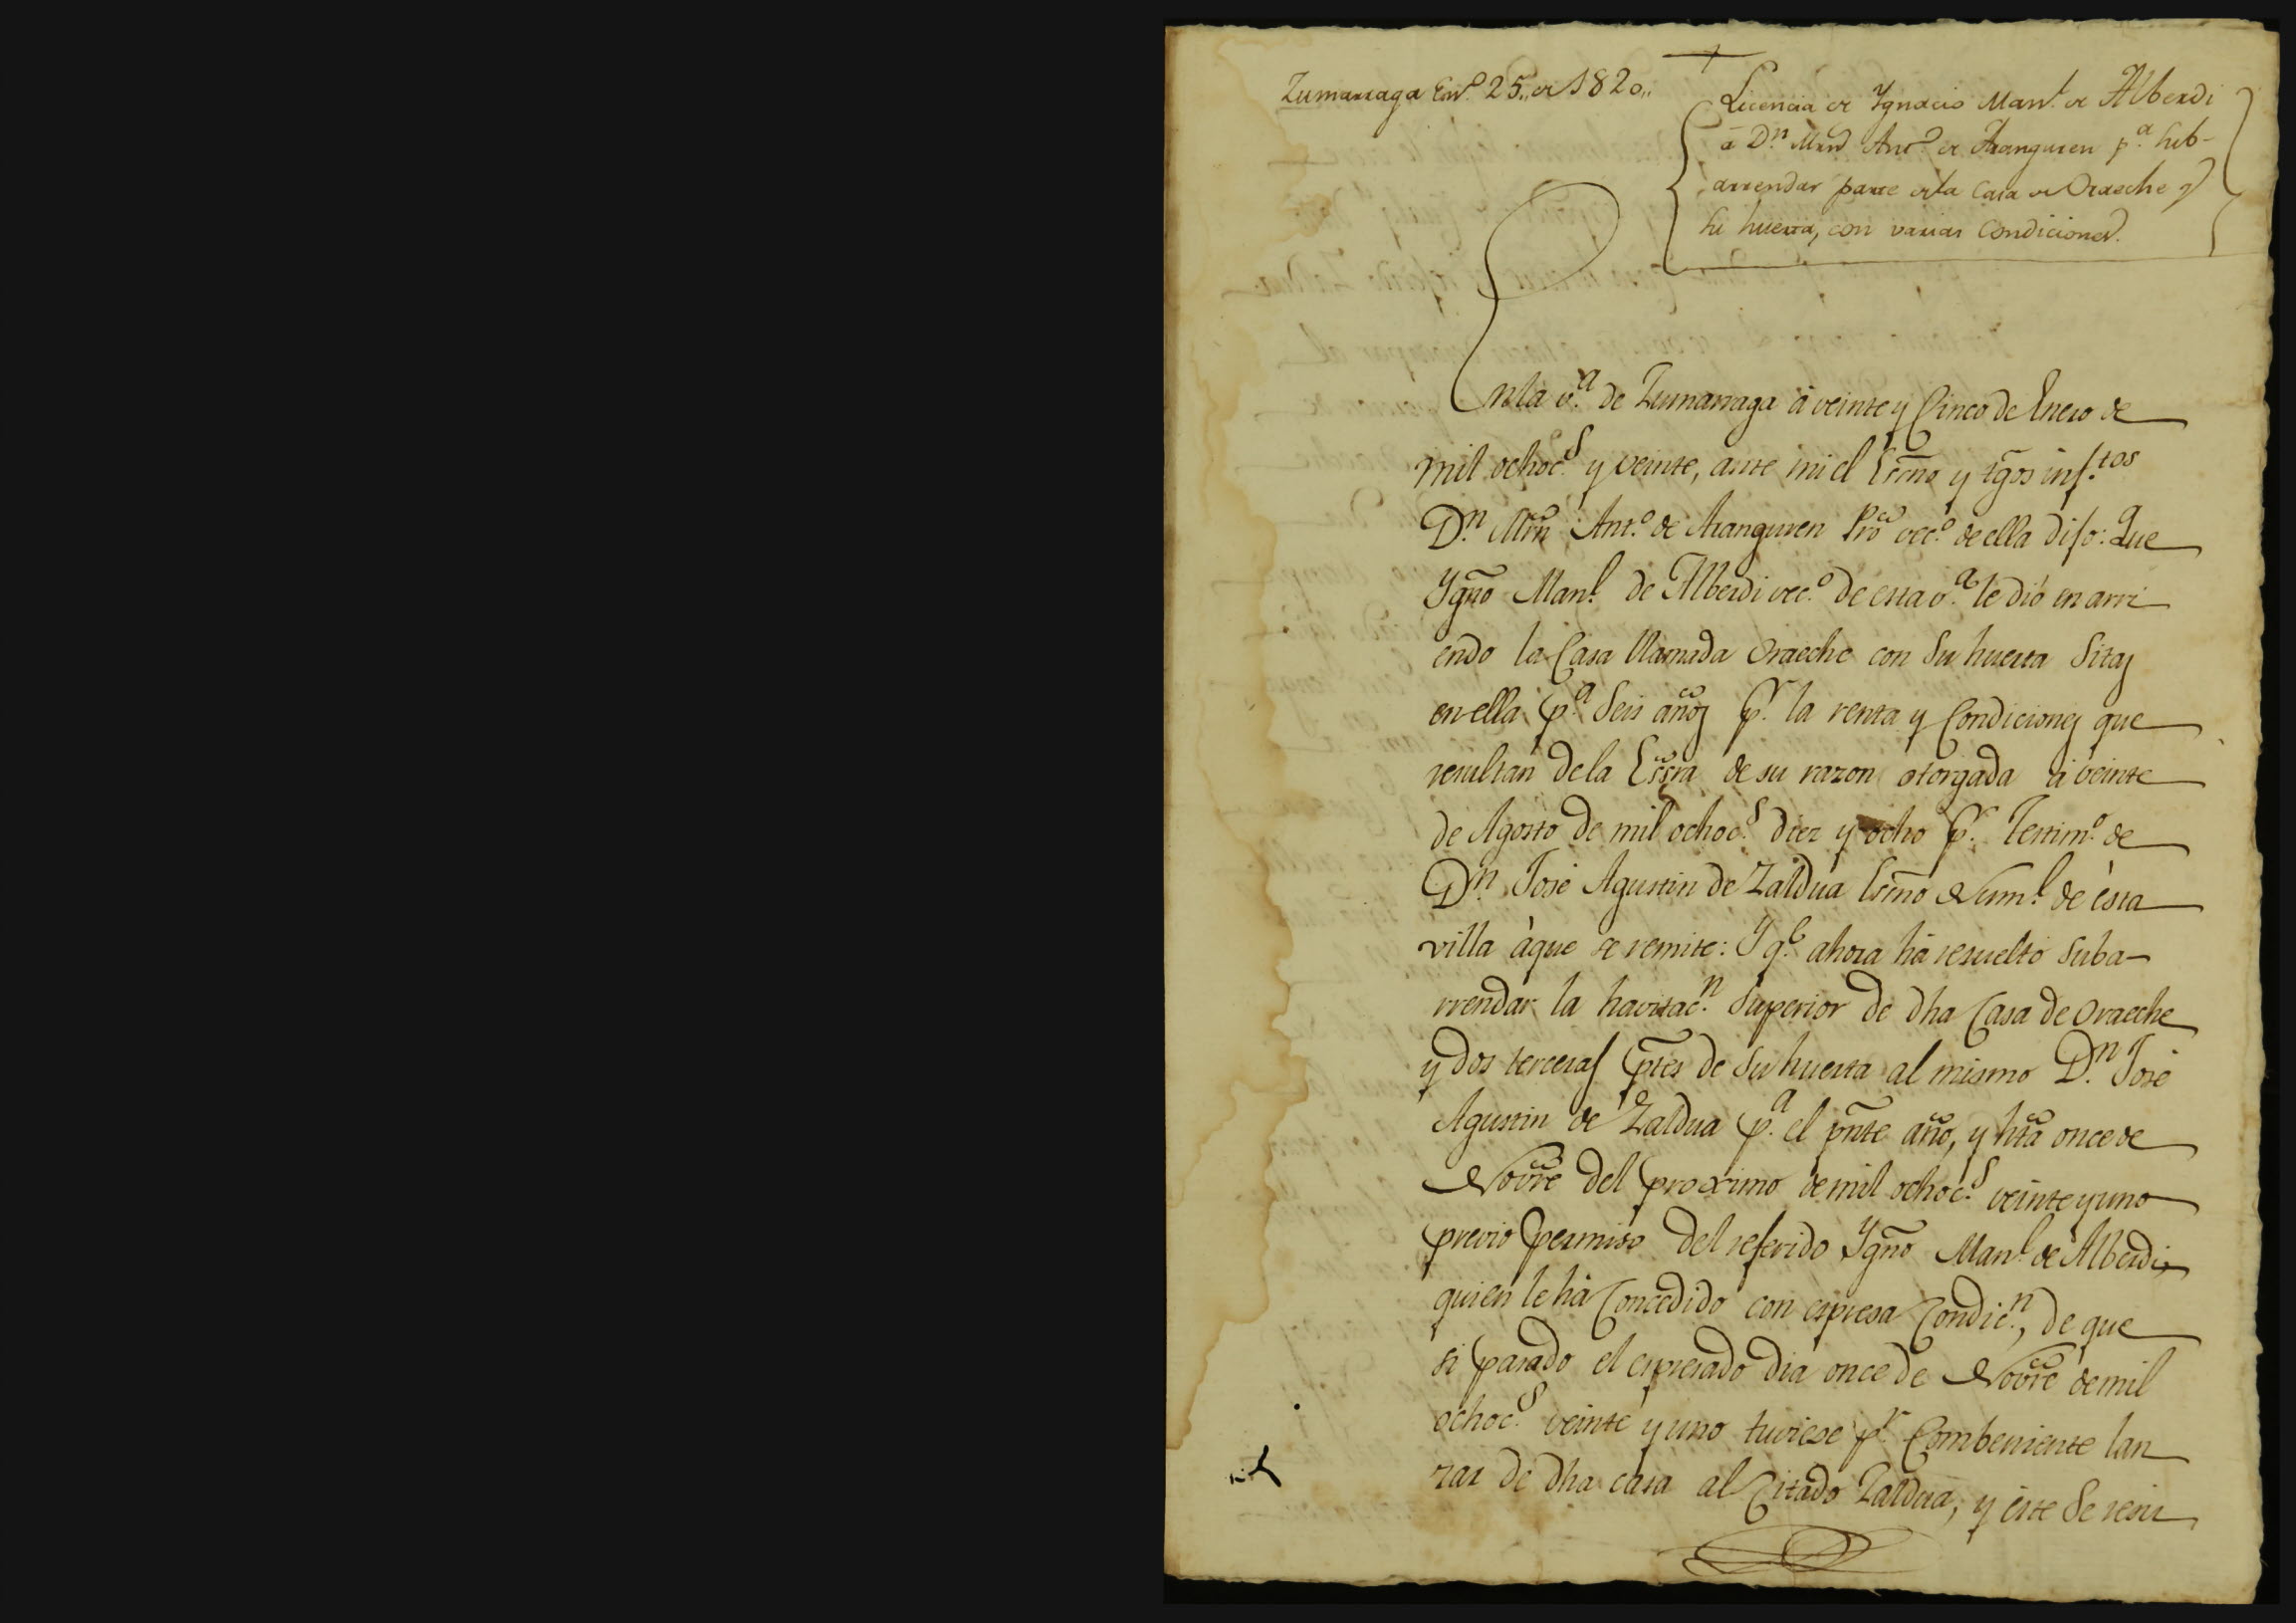 Zumarraga En.º 25,, de 1820,,
Licencia de Ygnacio Man.l de Alberdi
a D.n Mrn Ant.º de Aranguren p.a sub-
arrendar parte de la Casa de Oraeche y
su huerta, con varias Condiciones.
En la v.a de Zumarraga á veinte y Cinco de Enero de
mil ochoc.s y veinte, ante mi el Esno y tgos inf.tos
D.n Mrn Ant.º de Aranguren Pro vec.º de ella dijo: Que
Ygno Man.l de Alberdi vec.º de esta v.a le dió en arri
endo la Casa llamada Oraeche con su huerta sitas
en ella p.a seis años p.r la renta y Condiciones que
resultan de la Essra de su razon otorgada á veinte
de Agosto de mil ochoc.s diez y ocho p.r Testim.º de
D.n José Agustin de Zaldua Esno Num.l de ésta
villa àque se remite: Y q.e ahora há resuelto suba-
rrendar la havitac.n superior de dha Casa de Oraeche
y dos terceras ptes de su huerta al mismo D.n José
Agustin de Zaldua p.a el pnte año, y hta once de
Novre del proximo de mil ochoc.s veinte y uno
previo permiso del referido Ygno Man.l de Alberdi,
quien le há Concedido con espresa Condic.n, de que
si pasado el espresado dia once de Novre de mil
ochoc.s veinte y uno tuviese p.r Combeniente lan
zar de dha casa al Citado Zaldua, y éste se resis